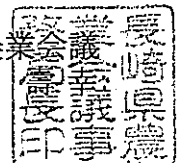 業会議
長崎県農
業会議事
務局長印